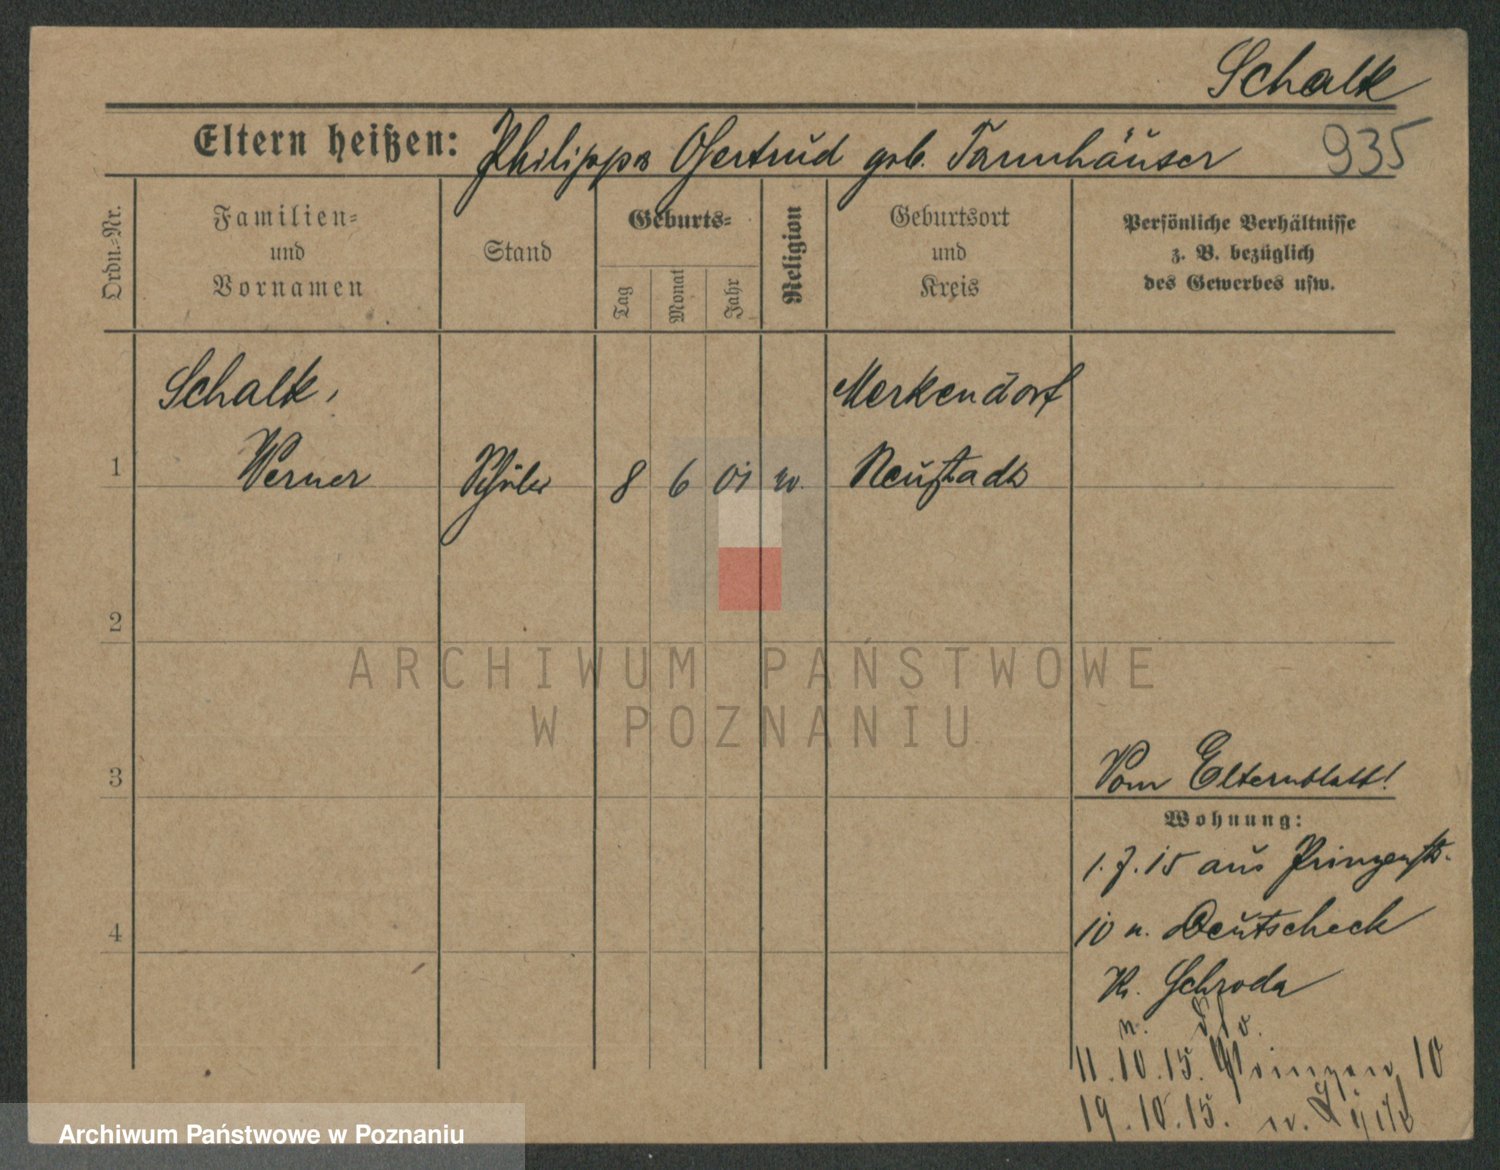 Schalk
Eltern heißen: Philipp u Gertrud geb. Tannhäuser 935
Ordn.-Nr.
Familien-
und
Vornamen
Stand
Geburts-
Tag
Monat
Jahr
Religion
Geburtsort
und
Kreis
Persönliche Verhältnisse
z. B. bezüglich
des Gewerbes usw.
Schalk,
Merkendorf
1 Werner Schüler 8 6 01 ev. Neustadt
2
ARCHIWUM PAŃSTWOWE
W POZNANIU
3
Vom Elternblatt!
Wohnung:
1.7.15 aus Prinzenstr.
10 n. Deutscheck
4
Kr. Schroda
11.10.15. Prinzen 10
19.10.15.
Archiwum Państwowe w Poznaniu